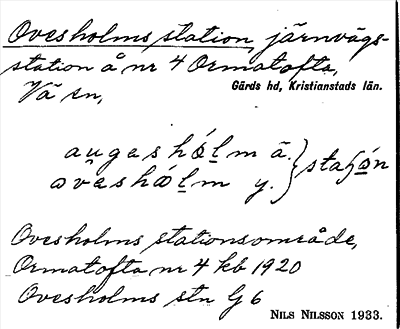 Ovesholms station, järnvägs-
station å nr 4 Ormatofta,
Gärds hd, Kristianstads län.
Vä sn,
au̯geshólm ä.
oveshólm y.
Ovesholms stationsområde,
Ormatofta nr 4 kb 1920
Ovesholms stn G 6
NILS NILSSON 1933.